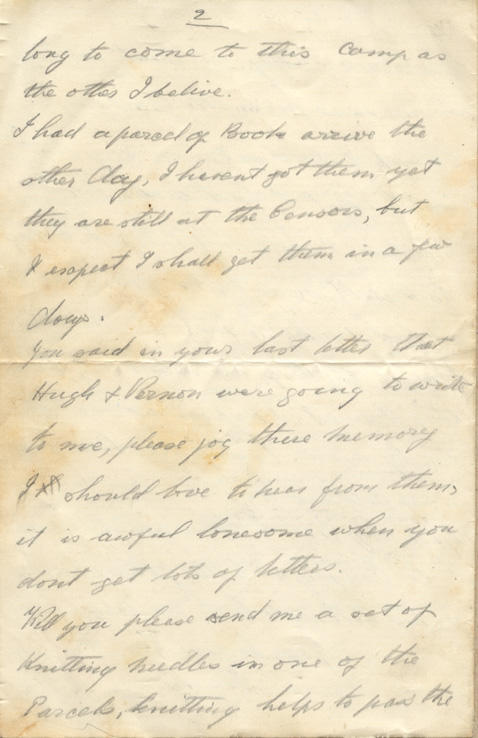 2
long to come to this Camp as
the other I belive.
I had a parcel of Books arrive the
other day, I havent got them yet
they are still at the Censors, but
I expect I shall get them in a few
days.
You said in your last letter that
Hugh & Vernon were going to write
to me, please jog there memory
I should love to hear from them,
it is awful lonesome when you
dont get lots of letters.
Will you please send me a set of
Knitting needles in one of the
Parcels, knitting helps to pass the